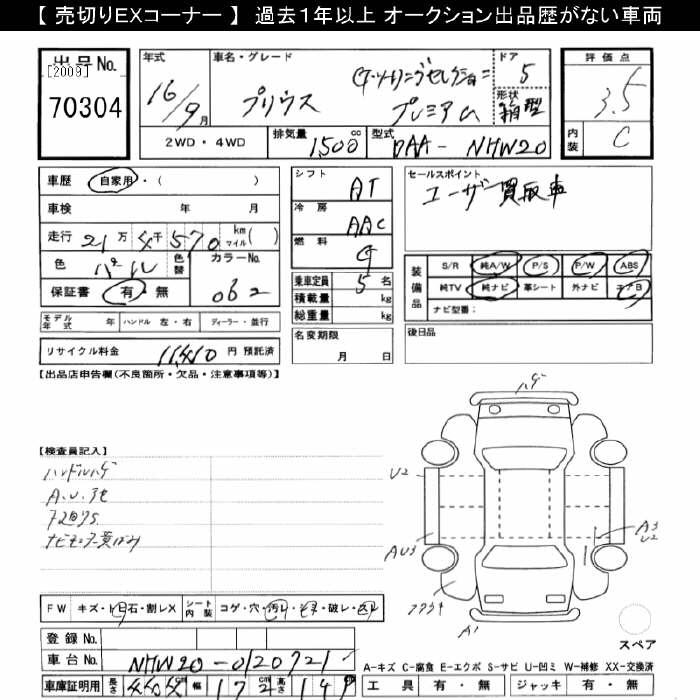 【 売切りEXコーナー 】 過去1年以上 オークション出品歴がない車両
出品No. [2009]
70304
年式 16/9月
車名・グレード プリウス
プレミアム
ドア 5
形状 箱型
評価点 3.5
内装 C
2WD・4WD
排気量 1,500 cc
型式 DAA- NHW20
車歴 自家用・( )
車検 年 月
走行 21万 4千 570 km マイル( )
色 パール
色替
カラーNo. 062
保証書 有・無
シフト AT
冷房 AAC
燃料 G
乗車定員 5名
積載量 kg
総重量 kg
セールスポイント
ユーザー買取車
装備品
S/R 純A/W P/S P/W ABS
純TV 純ナビ 革シート 外ナビ エアB
ナビ型番:
モデル年式 年 ハンドル 左・右 ディーラー・並行
名変期限 月 日
後日品
リサイクル料金 11,410 円 預託済
【出品店申告欄(不良箇所・欠品・注意事項等)】
【検査員記入】
ハンドルハゲ
ハゲ
U2
AU3
A3
U2
A1
FW キズ・トビ石・割レX
シート内装 コゲ・穴・汚レ・シミ・破レ・スレ
スペア
登録No.
車台No. NHW20-0120721
A-キズ C-腐食 E-エクボ S-サビ U-凹ミ W-補修 XX-交換済
車庫証明用 長さ 444 cm 幅 172 高さ 149
工具 有・無 ジャッキ 有・無